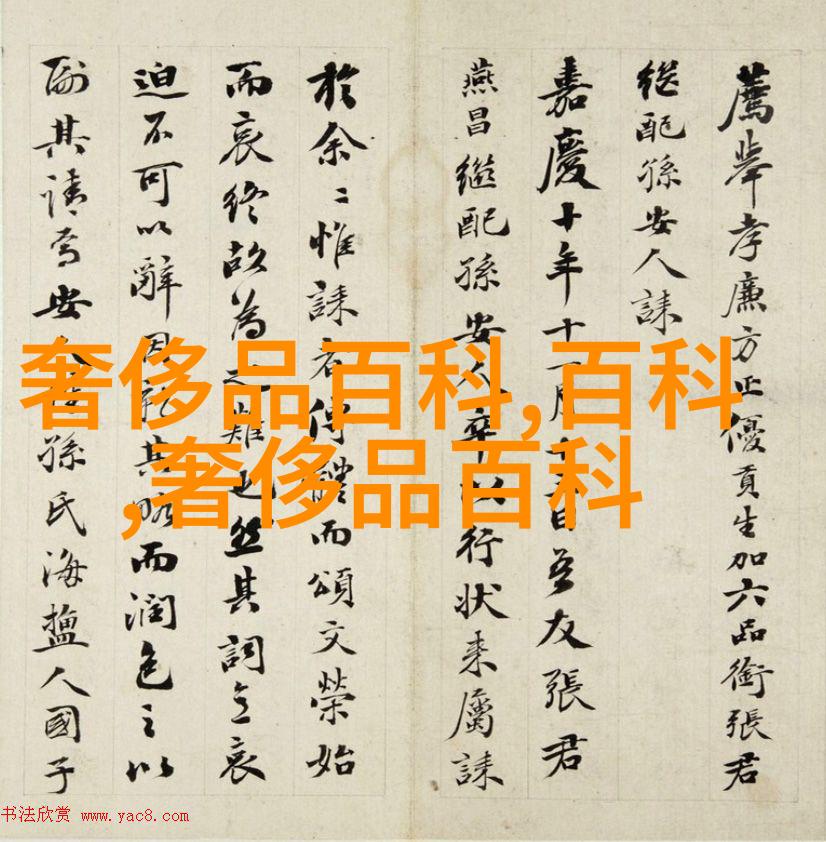 薦舉孝廉方正優貢生加六品銜張君
繼配孫安人誄
嘉慶十年十一月十日吾友張君
燕昌繼配孫安人卒以行狀來屬誄
於余〻惟誄者傳體而頌文榮始
而哀終故為之難也然其詞哀
迫不可以辭因其略而潤色之以
副其請焉安人孫氏海鹽人國子
奢侈品百科,百科
,奢侈品百科
书法欣赏 www.yac8.com